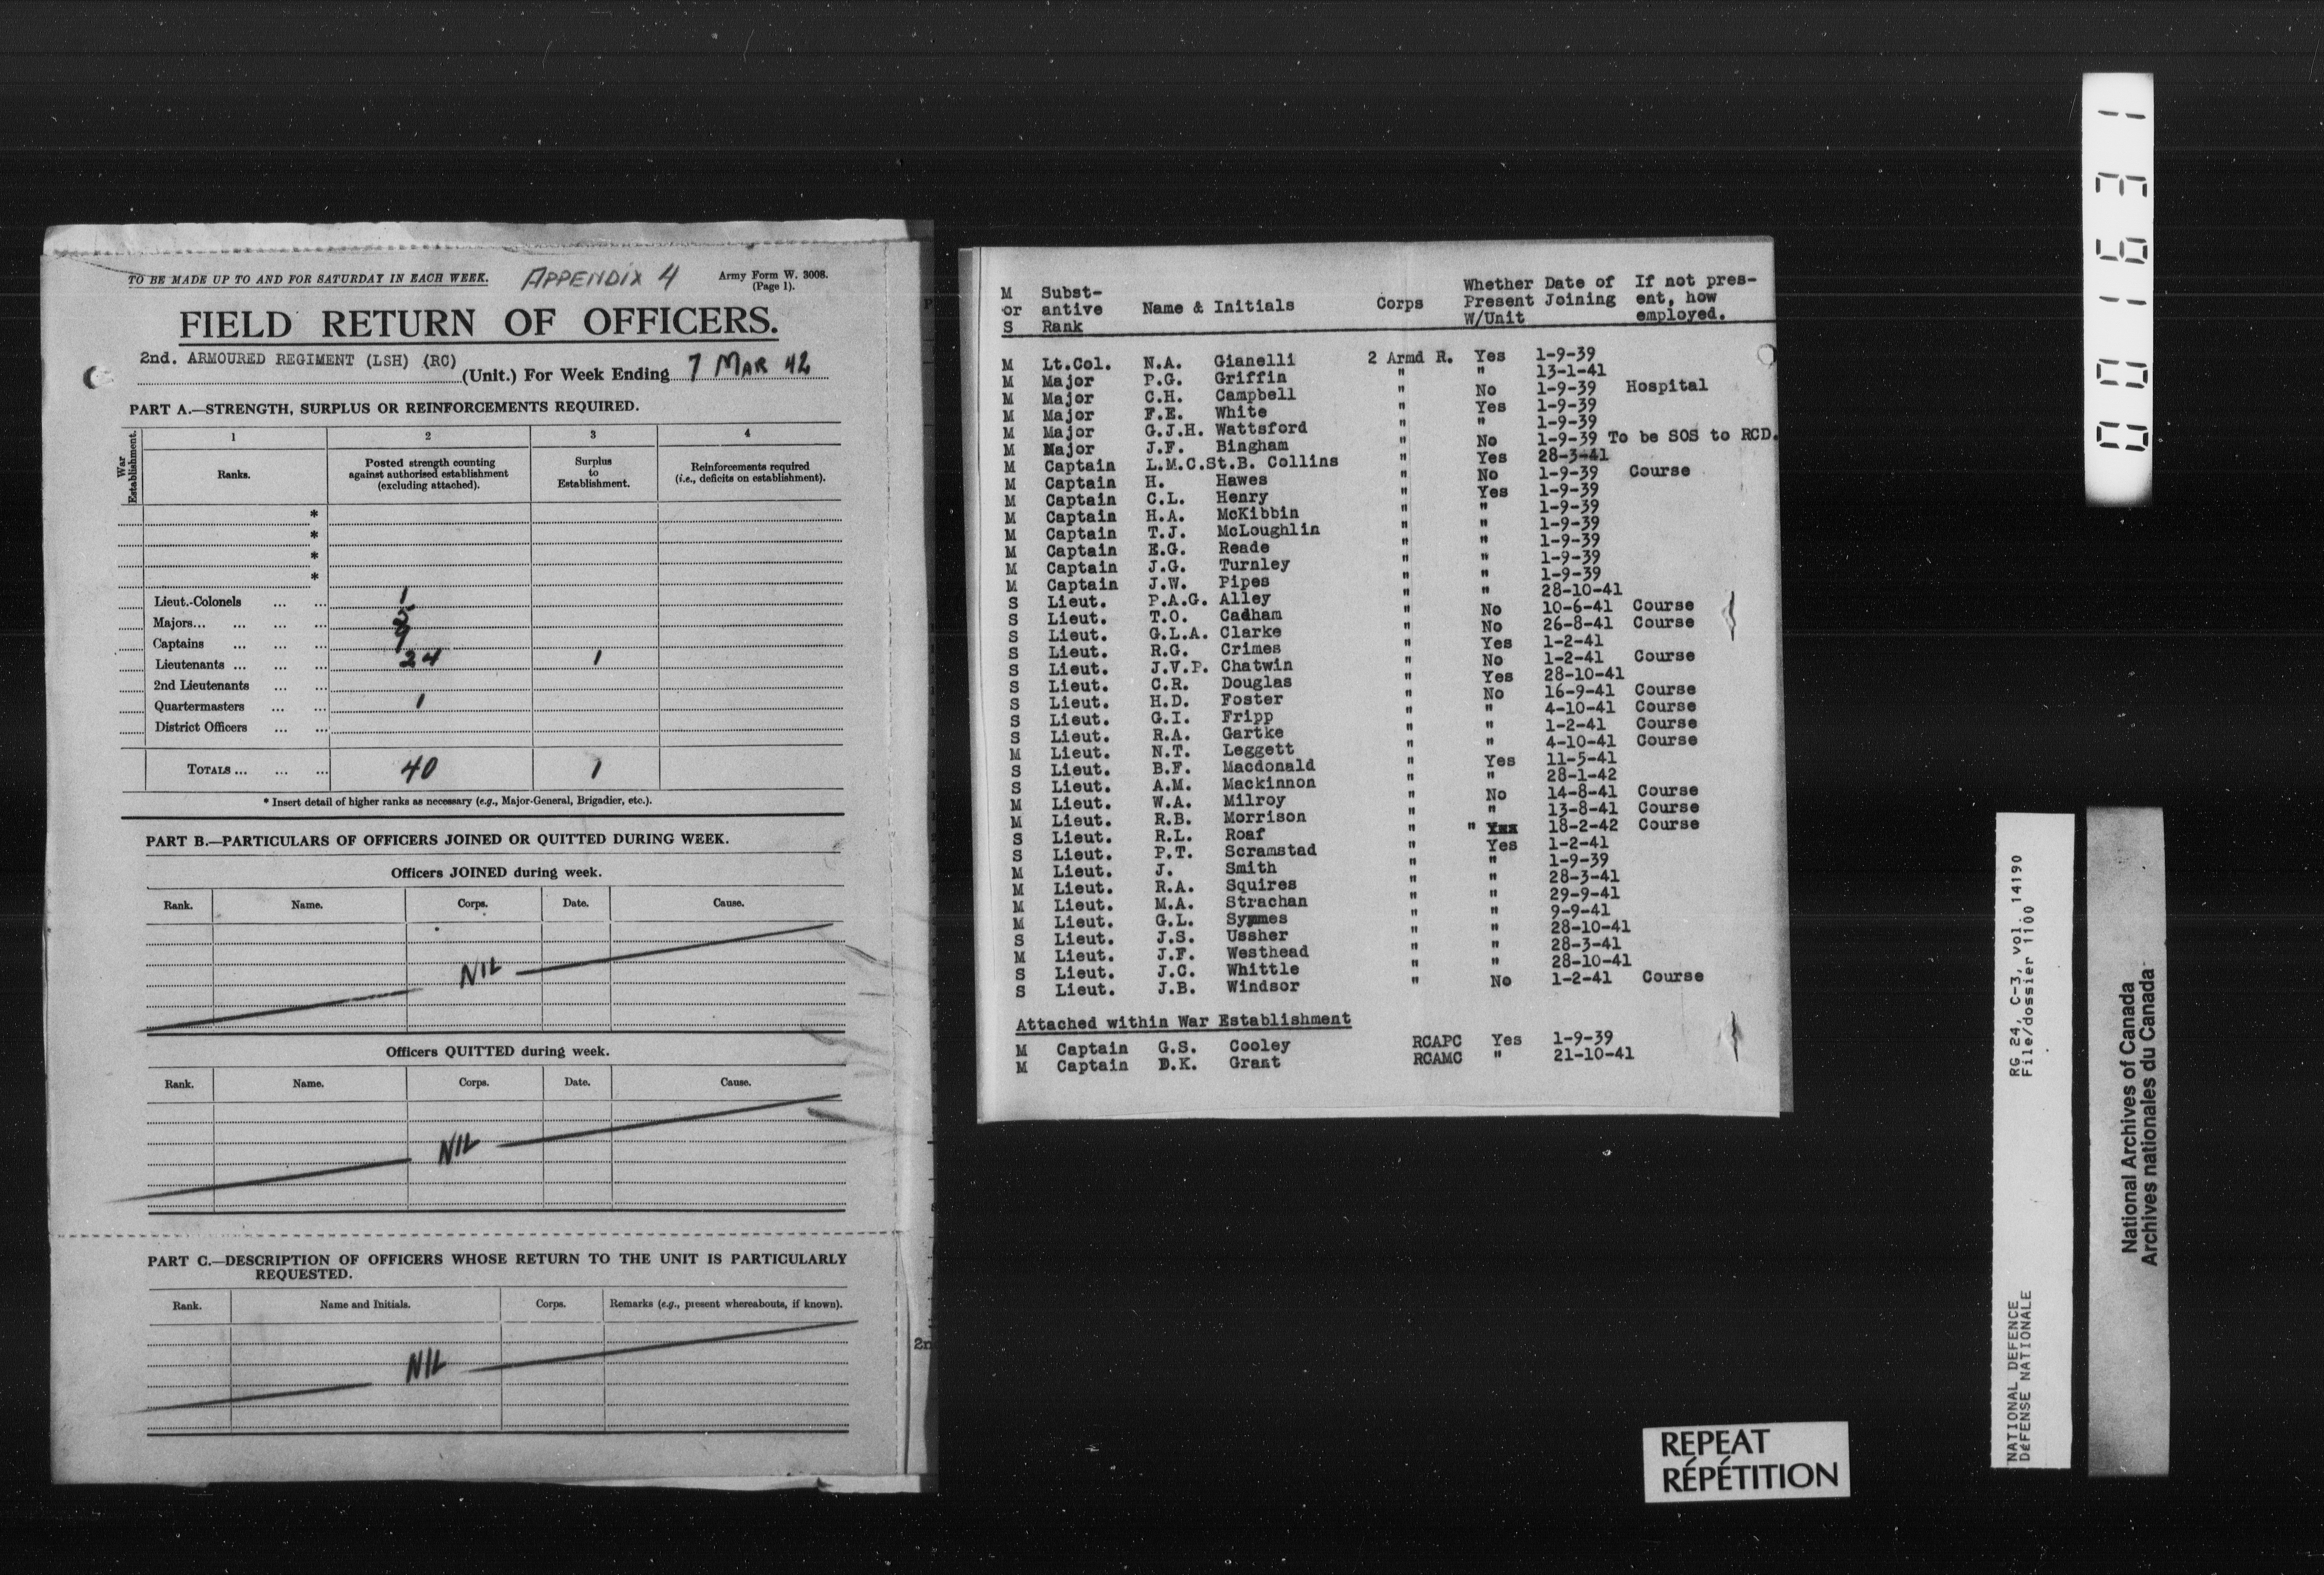 TO BE MADE UP TO AND FOR SATURDAY IN EACH WEEK. APPENDIX 4 Army Form W. 3008.
(Page 1).
FIELD RETURN OF OFFICERS.
2nd. ARMOURED REGIMENT (LSH) (RC) (Unit.) For Week Ending 7 MAR 42
PART A.—STRENGTH, SURPLUS OR REINFORCEMENTS REQUIRED.
War Establishment.
1 2 3 4
Ranks.
Posted strength counting against authorised establishment (excluding attached).
Surplus to Establishment.
Reinforcements required (i.e., deficits on establishment).
*
*
*
*
Lieut.-Colonels ... ... 1
Majors... ... ... ... 5
Captains ... ... ... 9
Lieutenants ... ... ... 24 1
2nd Lieutenants ... ...
Quartermasters ... ... 1
District Officers ... ...
TOTALS ... ... ... 40 1
* Insert detail of higher ranks as necessary (e.g., Major-General, Brigadier, etc.).
PART B.—PARTICULARS OF OFFICERS JOINED OR QUITTED DURING WEEK.
Officers JOINED during week.
Rank. Name. Corps. Date. Cause.
NIL
Officers QUITTED during week.
Rank. Name. Corps. Date. Cause.
NIL
PART C.—DESCRIPTION OF OFFICERS WHOSE RETURN TO THE UNIT IS PARTICULARLY
REQUESTED.
Rank. Name and Initials. Corps. Remarks (e.g., present whereabouts, if known).
NIL
2n
M Subst- Whether Date of If not pres-
or antive Name & Initials Corps Present Joining ent, how
S Rank W/Unit employed.
M Lt.Col. N.A. Gianelli 2 Armd R. Yes 1-9-39
M Major P.G. Griffin " " 13-1-41
M Major C.H. Campbell " No 1-9-39 Hospital
M Major F.E. White " Yes 1-9-39
M Major G.J.H. Wattsford " " 1-9-39
M Major J.F. Bingham " No 1-9-39 To be SOS to RCD.
M Captain L.M.C.St.B. Collins " Yes 28-3-41
M Captain H. Hawes " No 1-9-39 Course
M Captain C.L. Henry " Yes 1-9-39
M Captain H.A. McKibbin " " 1-9-39
M Captain T.J. McLoughlin " " 1-9-39
M Captain E.G. Reade " " 1-9-39
M Captain J.G. Turnley " " 1-9-39
M Captain J.W. Pipes " " 1-9-39
S Lieut. P.A.G. Alley " " 28-10-41
S Lieut. T.O. Cadham " No 10-6-41 Course
S Lieut. G.L.A. Clarke " No 26-8-41 Course
S Lieut. R.G. Crimes " Yes 1-2-41
S Lieut. J.V.P. Chatwin " No 1-2-41 Course
S Lieut. C.R. Douglas " Yes 28-10-41
S Lieut. H.D. Foster " No 16-9-41 Course
S Lieut. G.I. Fripp " " 4-10-41 Course
S Lieut. R.A. Gartke " " 1-2-41 Course
M Lieut. N.T. Leggett " " 4-10-41 Course
S Lieut. B.F. Macdonald " Yes 11-5-41
S Lieut. A.M. Mackinnon " " 28-1-42
M Lieut. W.A. Milroy " No 14-8-41 Course
M Lieut. R.B. Morrison " " 13-8-41 Course
S Lieut. R.L. Roaf " " 18-2-42 Course
S Lieut. P.T. Scramstad " Yes 1-2-41
M Lieut. J. Smith " " 1-9-39
M Lieut. R.A. Squires " " 28-3-41
M Lieut. M.A. Strachan " " 29-9-41
M Lieut. G.L. Symmes " " 9-9-41
S Lieut. J.S. Ussher " " 28-10-41
M Lieut. J.F. Westhead " " 28-3-41
S Lieut. J.C. Whittle " " 28-10-41
S Lieut. J.B. Windsor " No 1-2-41 Course
Attached within War Establishment
M Captain G.S. Cooley RCAPC Yes 1-9-39
M Captain D.K. Grant RCAMC " 21-10-41
001631
NATIONAL DEFENCE RG 24, C-3, vol. 14190
DÉFENSE NATIONALE File/dossier 1100
National Archives of Canada
Archives nationales du Canada
REPEAT
RÉPÉTITION